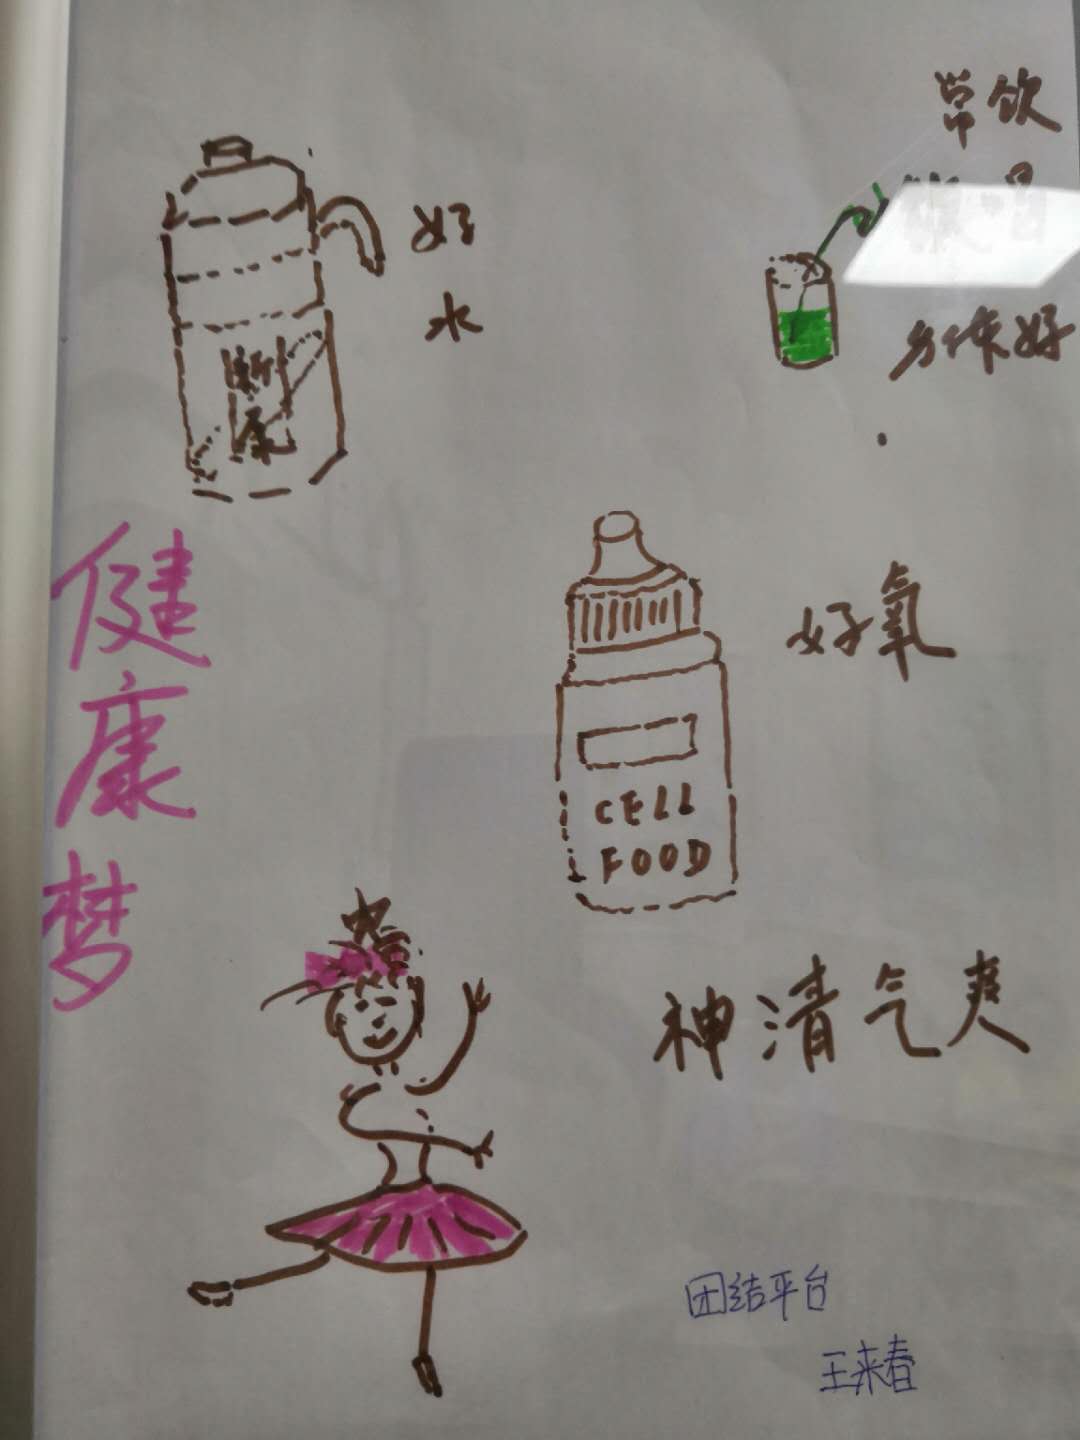 常饮
好
水
身体好
健
康
梦
好氧
CELL
FOOD
神清气爽
团结平台
王来春